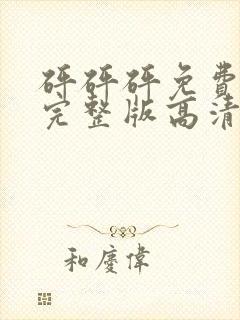 砰砰砰免费
完整版高清
和庆伟